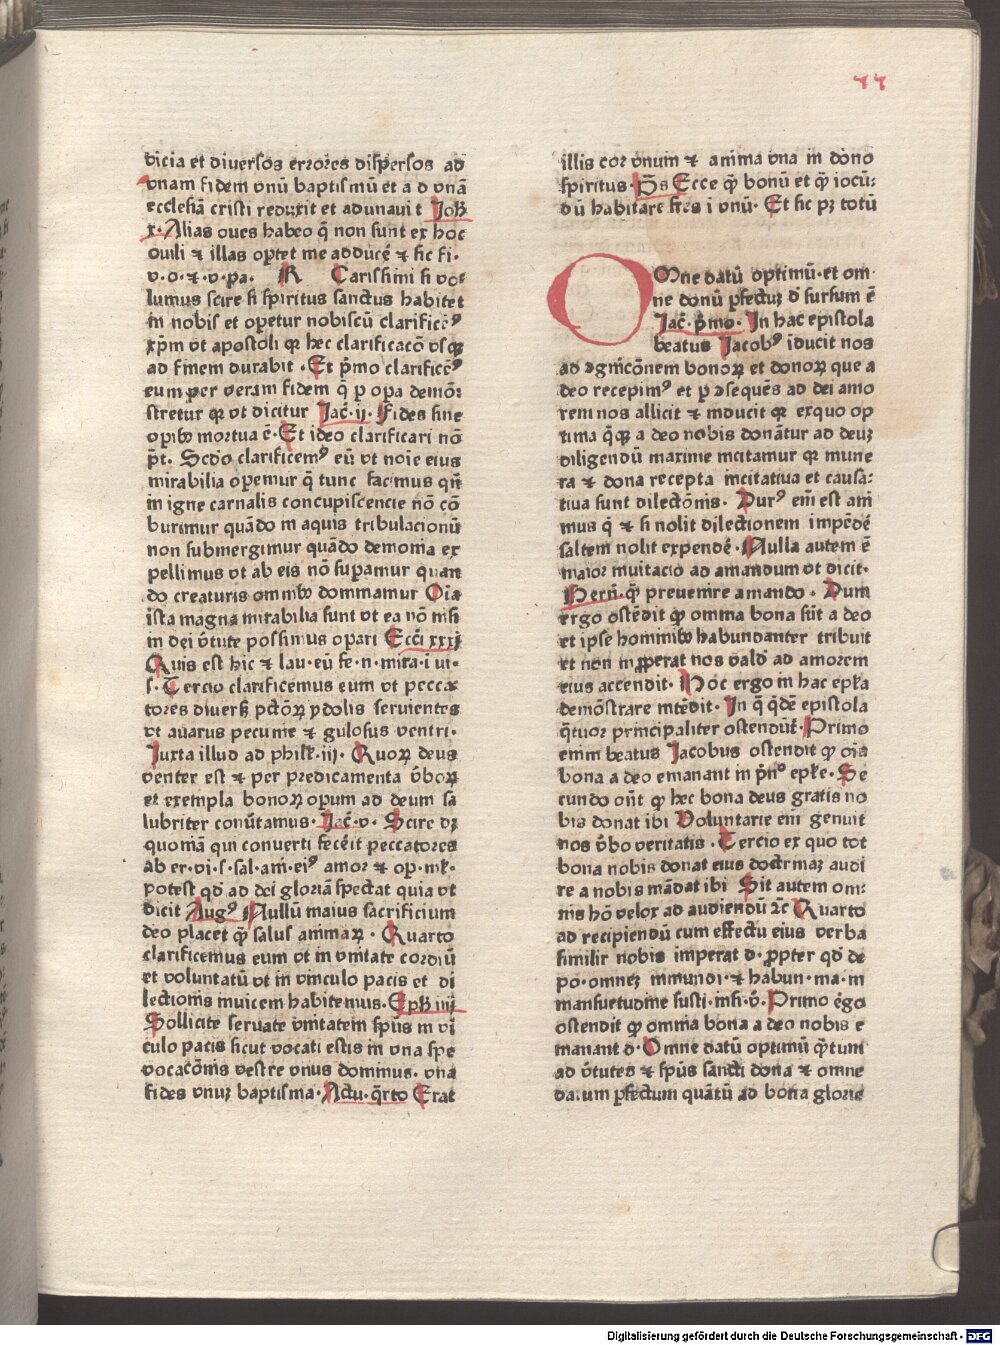 77
dicia et diuersos errores dispersos ad
vnam fidem vnū baptismū et a d vnā
ecclesiā cristi reduxit et adunaui t Joħ
x· Alias oues habeo q̄ non sunt ex hoc
ouili ⁊ illas optet me adducē ⁊ fic fi·
v·o·⁊·v·pa· R Carissimi si vo⸗
lumus scire si spiritus sanctus habitet
in nobis et opetur nobiscū clarificēꝰ
xp̄m vt apostoli qꝛ hec clarificacō vsqꝫ
ad finem durabit · Et p̄mo clarificēꝰ
eum per veram fidem q̄ p opa demō⸗
stretur qꝛ vt dicitur Jac̄·ij· Fides sine
opibꝫ mortua ē· Et ideo clarificari nō
p̄t· Scd̄o clarificemꝰ eū vt noīe eius
mirabilia opemur q̄ tunc facimus qn̄
in igne carnalis concupiscencie nō cō
burimur quādo in aquis tribulacionū
non submergimur quādo demonia ex
pellimus vt ab eis nō supamur quan
do creaturis omnibꝫ dominamur Oīa
ista magna mirabilia sunt vt ea nō nisi
in dei v̄tute possimus opari Ecc̄i xxxj
Quis est hic ⁊ lau·eū fe·n·mira·i ui·
s· Tercio clarificemus eum vt pecca⸗
tores diuersꝭ pctōꝝ ydolis seruientes
vt auarus pecunie ⁊ gulosus ventri·
Juxta illud ad philꝭ·iij· Quoꝝ deus
venter est ⁊ per predicamenta v̄boꝝ
et exempla bonoꝝ opum ad deum sa
lubriter conūtamus· Jac̄·v· Scire dꝫ
quoniā qui conuerti fecēit peccatores
ab er·vi·s·sal·am̄·eiꝰ amor ⁊ op·mł·
potest qd̄ ad dei gloriā spectat quia vt
dicit Augꝰ Nullū maius sacrificium
deo placet q̄ꝫ salus animaꝝ · Quarto
clarificemus eum vt in vnitate cordiū
et voluntatū vt in vinculo pacis et di
lectionis inuicem habitemus· Epħ iiij
Sollicite seruate vnitatem sp̄us in vi
culo pacis sicut vocati estis in vna spe
vocacōnis vestre vnus dominus· vna
fides vnuꝫ baptisma· Actu·q̄rto Erat
illis cor vnum ⁊ anima vna in dōno
spiritus· P̄s Ecce q̄ꝫ bonū et q̄ꝫ iocū⸗
dū habitare fres i vnū· Et sic pꝫ totū
OOne datū optimū·et om
ne donū pfectuꝫ d̄ sursum ē
Jac̄·p̄mo· In hac epistola
beatus Jacobꝰ īducit nos
ad ꝯgnicōnem bonoꝝ et donoꝝ que a
deo recepimꝰ et p ꝯsequēs ad dei amo
rem nos allicit ⁊ inducit qꝛ exquo op
tima q̄qꝫ a deo nobis donātur ad deuꝫ
diligendū maxime incitamur qꝛ mune
ra ⁊ dona recepta incitatiua et causa⸗
tiua sunt dilectōnis· Durꝰ em̄ est ani
mus q̄ ⁊ si nolit dilectionem impēdē
saltem nolit expendē· Nulla autem ē
maior inuitacio ad amandum vt dicit·
Bern̄·q̄ꝫ preuenire amando · Dum
ergo ostēdit qꝫ omnia bona sūt a deo
et ipse hominibꝫ habundanter tribuit
et non impꝓperat nos vald̄ ad amorem
eius accendit· Hoc ergo in hac epł̄a
demōstrare intēdit· In q̄ q̄dē epistola
q̄tuor principaliter ostendūt̄· Primo
enim beatus Jacobus ostendit qꝫ oīa
bona a deo emanant in p̄nᵒ epł̄e· Se
cundo on̄t qꝫ hec bona deus gratis no
bis donat ibi Voluntarie em̄ genuit
nos v̄bo veritatis · Tercio ex quo tot
bona nobis donat eius doctrinaꝫ audi
re a nobis mādat ibi Sit autem om⸗
nis hō velox ad audiendū ⁊c̄ Quarto
ad recipiendū cum effectu eius verba
similir nobis imperat d· ꝓpter qd̄ de
po·omneꝫ inmundi·⁊ habun·ma·in
mansuetudine susti·insi·v̄· Primo ergo
ostendit qꝫ omnia bona a deo nobis e
manant d· Omne datū optimū q̄tum
ad v̄tutes ⁊ sp̄us sancti dona ⁊ omne
datum pfectum quātū ad bona glorie
Digitalisierung gefördert durch die Deutsche Forschungsgemeinschaft - DFG